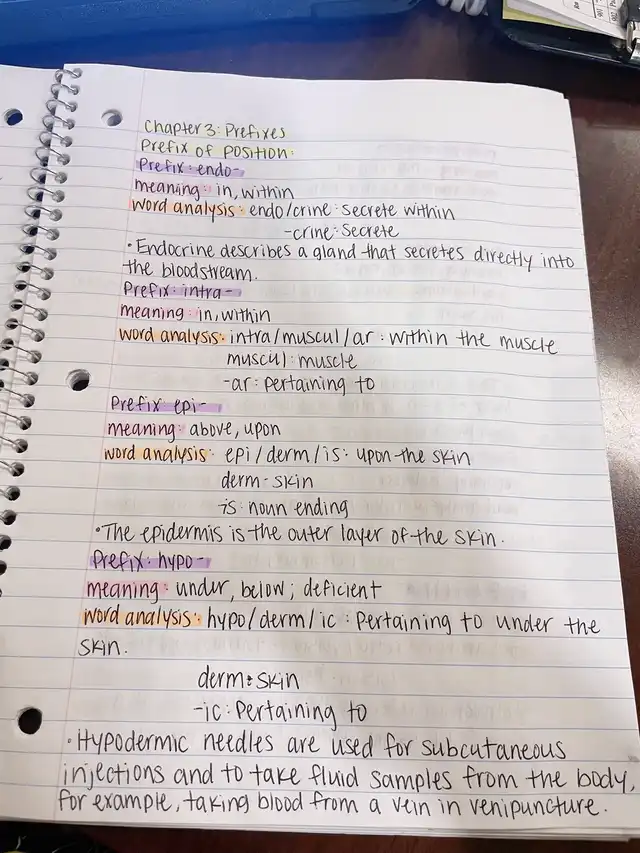 Chapter 3: Prefixes
Prefix of position:
Prefix: endo-
meaning: in, within
word analysis: endo/crine: secrete within
-crine: secrete
• Endocrine describes a gland that secretes directly into
the bloodstream.
Prefix: intra-
meaning: in, within
word analysis: intra/muscul/ar: within the muscle
muscul: muscle
-ar: pertaining to
Prefix: epi-
meaning: above, upon
word analysis: epi/derm/is: upon the skin
derm- skin
is: noun ending
• The epidermis is the outer layer of the skin.
Prefix: hypo-
meaning: under, below; deficient
word analysis: hypo/derm/ic: Pertaining to under the
skin.
derm: skin
-ic: Pertaining to
• Hypodermic needles are used for subcutaneous
injections and to take fluid samples from the body,
for example, taking blood from a vein in venipuncture.